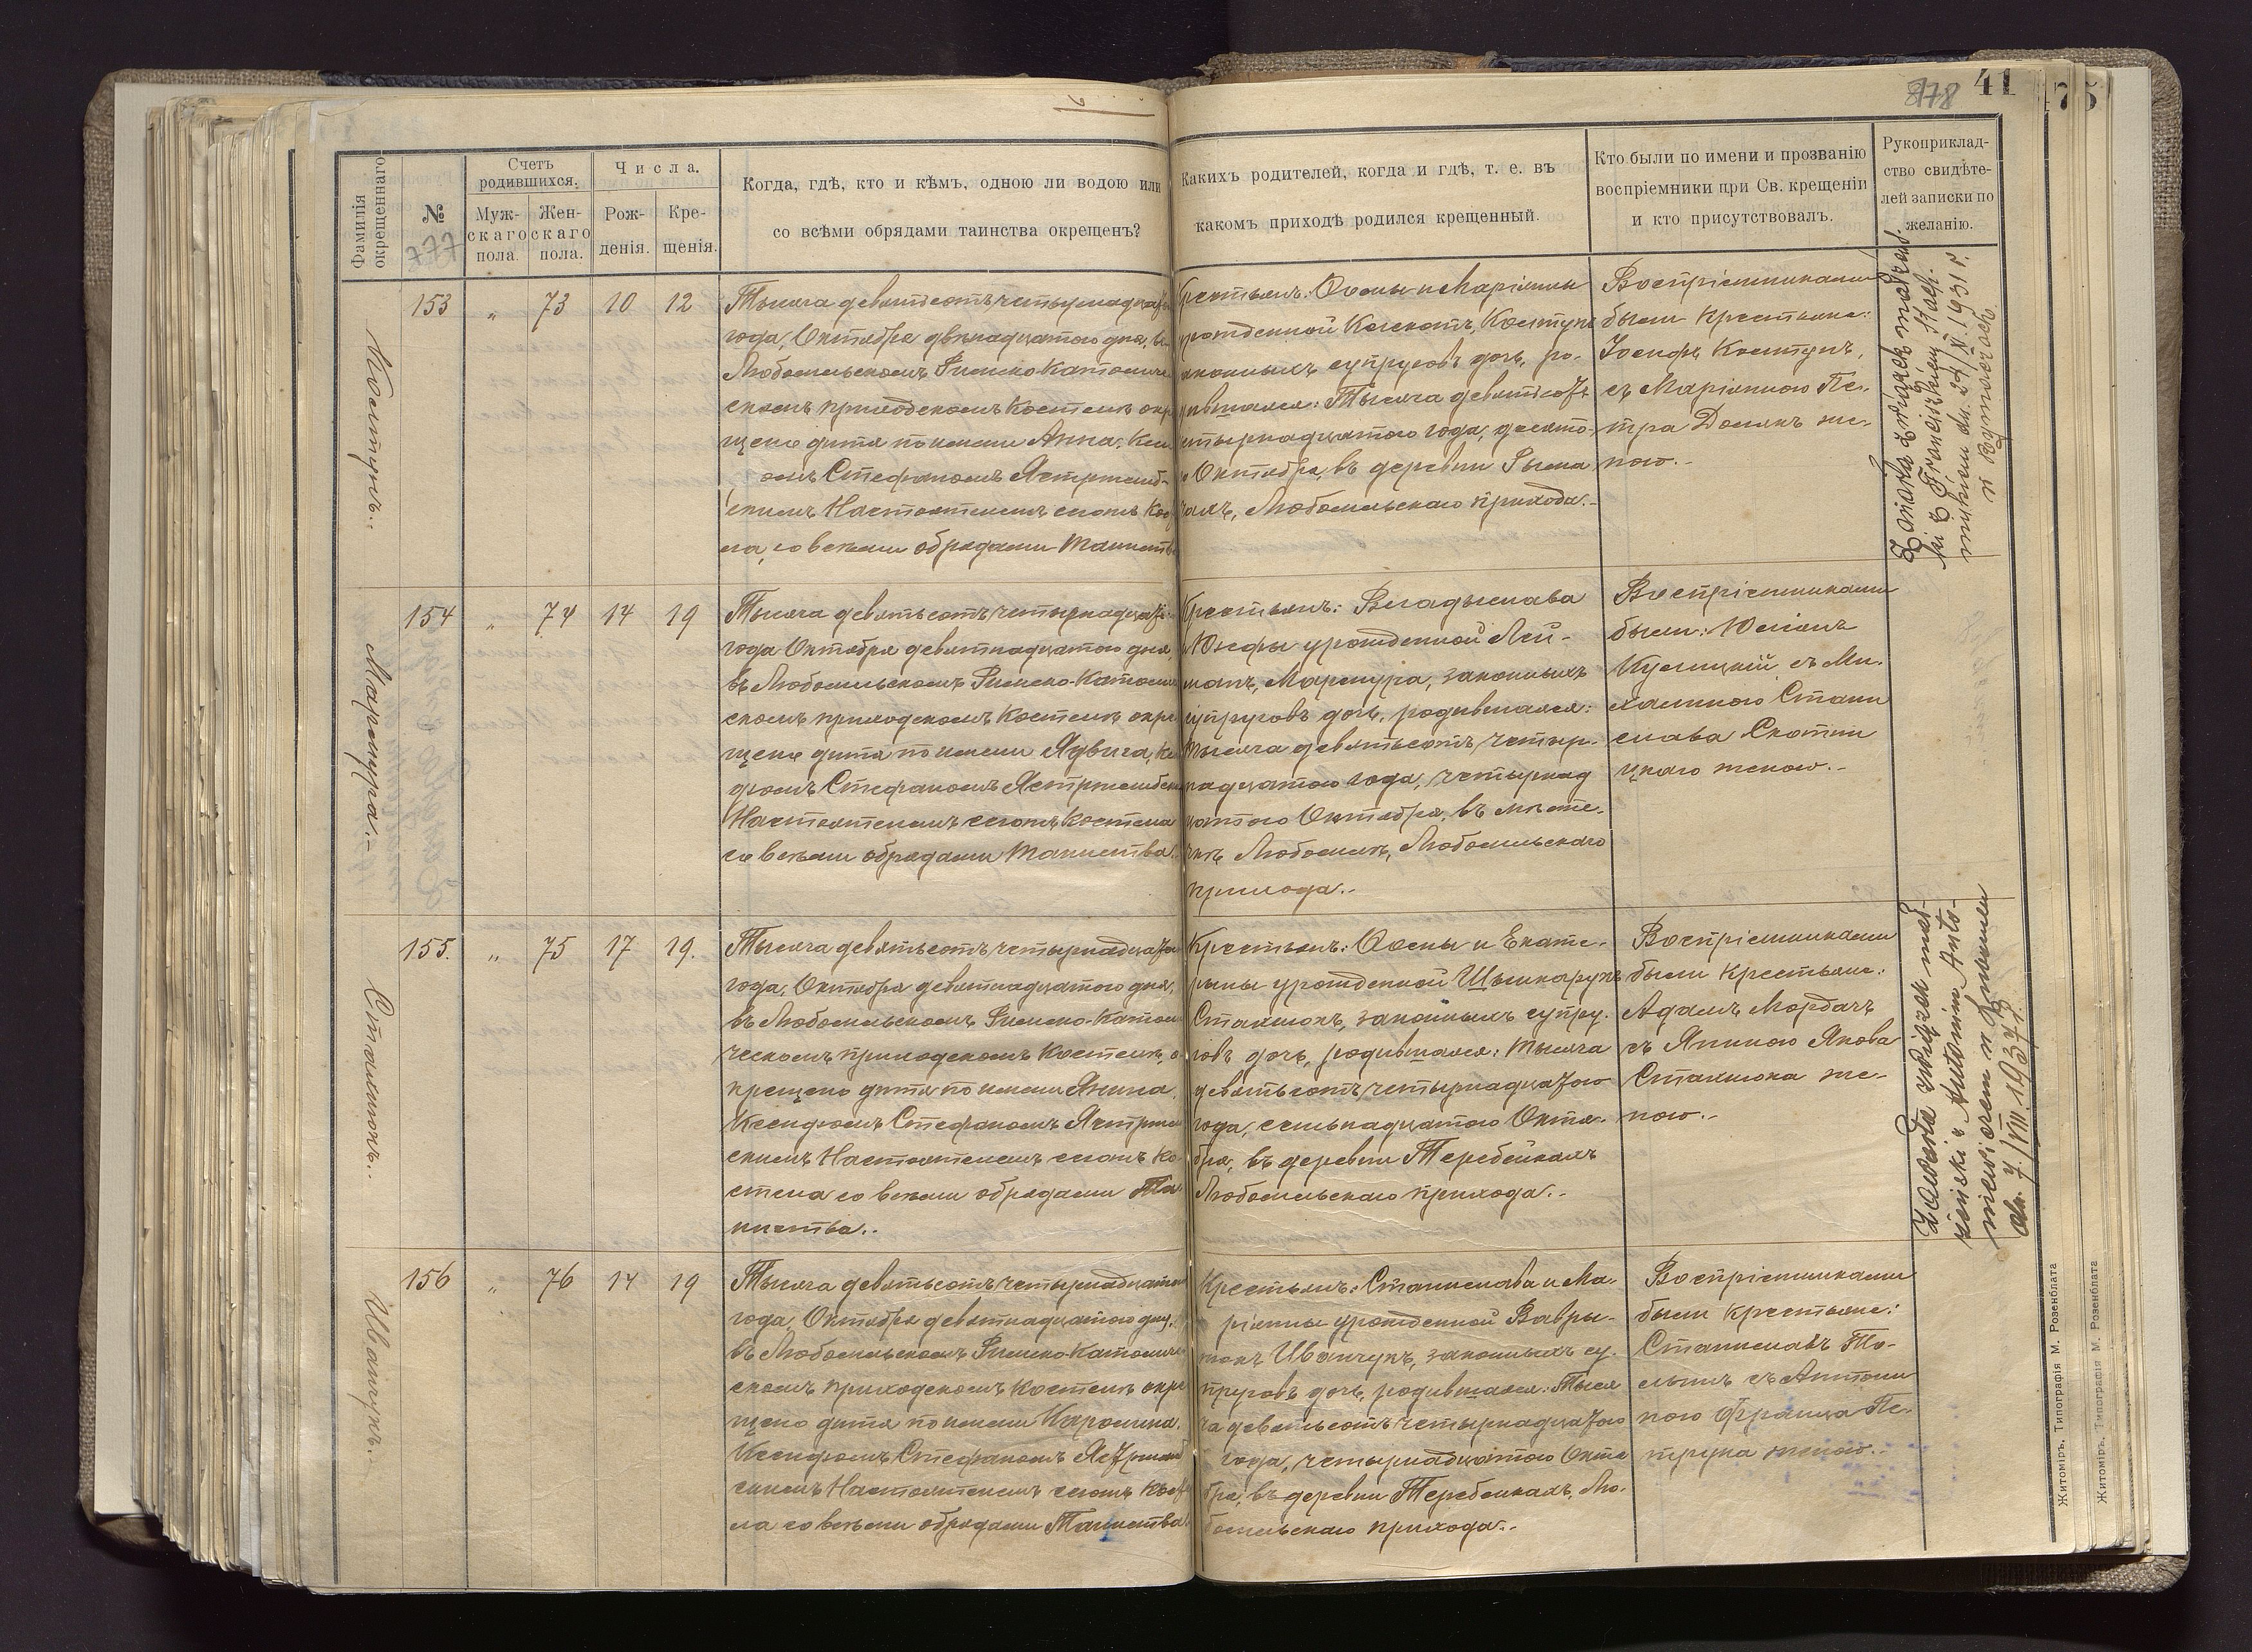 41
878
75
Фамилія окрещеннаго
№
777
Счетъ родившихся.
Муж-
скаго
пола.
Жен-
скаго
пола.
Числа.
Рож-
денія.
Кре-
щенія.
Когда, гдѣ, кто и кѣмъ, одною ли водою или
со всѣми обрядами таинства окрещенъ?
Каихъ родителей, когда и гдѣ, т. е. въ
какомъ приходѣ родился крещенный.
Кто были по имени и прозванію
воспріемники при Св. крещеніи
и кто присутствовалъ.
Рукоприклад-
ство свидѣте-
лей записки по
желанію.
Костунъ.
153 „ 73 10 12
Тысяча девятьсотъ четырнадцатаго
года, Октября двѣнадцатаго дня, въ
Любомльскомъ Римско-Католиче
скомъ приходскомъ Костелѣ окре
щено дитя по имени Анна, Ксен
омъ Стефаномъ Ястржемб-
скимъ Настоятелемъ сего Кос
ла, со всѣми обрядами Таинства
Крестьянъ: Осипы и Маріянны
урожденной Костунъ
законныхъ супруговъ дочь, ро-
дившаяся: Тысяча девятьсотъ
четырнадцатаго года, десято-
Октября, въ деревни Рыма
чахъ, Любомльскаго прихода.
Воспріемниками
были Крестьяне:
Іосифъ Костунъ,
съ Маріянною Пе-
тра Долякъ же-
ною.
Zawarła związek małżeń.
ski z Franciszkiem
dn. 29/XI. 1931 r.
w Rymaczach
Мармура.
154 „ 74 14 19
Тысяча девятьсотъ четырнадцата
года Октября девятнадцатаго дня,
въ Любомльскомъ Римско-Католи
скомъ приходскомъ Костелѣ окре
щено дитя по имени Ядвига, Кс
дзомъ Стефаномъ Ястржембски
Настоятелемъ сего Костела
со всѣми обрядами Таинства.
Крестьянъ: Владыслава
Юзефы урожденной Лей-
манъ, Мармура, законныхъ
супруговъ дочь, родившаяся:
тысяча девятьсотъ четыр-
надцатаго года, четырнад
цатаго Октября, въ мѣсте-
чкѣ Любомлѣ, Любомльскаго
прихода.
Воспріемниками
были: Юліянъ
Кулицкій съ Ми-
халиною Стани
слава Скотни
цкаго женою.
Стахнюкъ.
155. „ 75 17 19.
Тысяча девятьсотъ четырнадцатаго
года, Октября девятнадцатаго дня,
въ Любомльскомъ Римско-Катол
ческомъ приходскомъ Костелѣ, о
крещено дитя по имени Янина,
Ксендзомъ Стефаномъ Ястржем
скимъ Настоятелемъ сего Ко
стела со всѣми обрядами Та-
инства.
Крестьянъ: Осипы и Екате-
рыны урожденной
Стахнюкъ, законныхъ супру-
говъ дочь, родившаяся: тысяча
девятьсотъ четырнадцатаго
года, семьнадцатаго Октя-
бря, въ деревни Теребейкахъ
Любомльскаго прихода.
Воспріемниками
были Крестьяне:
Адамъ Мордачъ
съ Янною Якова
Стахнюка же-
ною.
Zawarła związek mał-
żeński z Antonim Anto-
niewiczem w
dn. 7/VIII. 1937 r.
Иванчукъ.
156 „ 76 14 19
Тысяча девятьсотъ четырнадцатаго
года, Октября девятнадцатаго дня,
въ Любомльскомъ Римско-Католиче
скомъ приходскомъ Костелѣ окре
щено дитя по имени Каролина,
Ксендзомъ Стефаномъ Ястржемб
скимъ Настоятелемъ сего Косте
ла со всѣми обрядами Таинства.
Крестьянъ: Станислава и Ма-
ріянны урожденной Вавры-
нюкъ Иванчукъ, законныхъ су-
пруговъ дочь, родившаяся: Тыся
ча девятьсотъ четырнадцатаго
года, четырнадцатаго Октя
бря, въ деревни Теребейкахъ, Лю-
бомльскаго прихода.
Воспріемниками
были Крестьяне:
Станиславъ
съ Антони
ною Франца Пе-
трука женою.
Житомiръ, Типографія М. Розенблата
Житомiръ, Типографія М. Розенблата